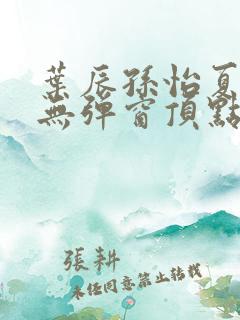 葉辰孫怡夏
無彈窗頂點
張耕
未經同意禁止轉載